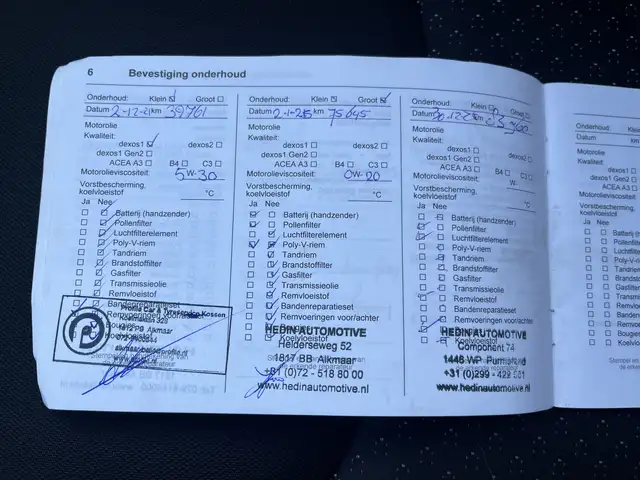 6 Bevestiging onderhoud
Onderhoud: Klein Groot
Datum 2-12-21 km 39761
Motorolie
Kwaliteit:
dexos1 dexos2
dexos1 Gen2
ACEA A3 B4 C3
Motorolieviscositeit:
5W-30
Vorstbescherming,
koelvloeistof °C
Ja Nee
Batterij (handzender)
Pollenfilter
Luchtfilterelement
Poly-V-riem
Tandriem
Brandstoffilter
Gasfilter
Transmissieolie
Remvloeistof
Bandenreparatieset
Profile Car & Tyreservice Kossen
1812 PG Alkmaar
Onderhoud: Klein Groot
Datum km 75645
Motorolie
Kwaliteit:
dexos1 dexos2
dexos1 Gen2
ACEA A3 B4 C3
Motorolieviscositeit:
0W-20
Vorstbescherming,
koelvloeistof °C
Ja Nee
Batterij (handzender)
Pollenfilter
Luchtfilterelement
Poly-V-riem
Tandriem
Brandstoffilter
Gasfilter
Transmissieolie
Remvloeistof
Bandenreparatieset
Remvoeringen voor/achter
HEDIN AUTOMOTIVE
Helderseweg 52
1817 BB Alkmaar
+31 (0)72 - 518 80 00
www.hedinautomotive.nl
Onderhoud: Klein Groot
Datum km
Motorolie
Kwaliteit:
dexos1 dexos2
dexos1 Gen2
ACEA A3 B4 C3
Motorolieviscositeit:
W-
Vorstbescherming,
koelvloeistof °C
Ja Nee
Batterij (handzender)
Pollenfilter
Luchtfilterelement
Poly-V-riem
Tandriem
Brandstoffilter
Gasfilter
Transmissieolie
Remvloeistof
Bandenreparatieset
Remvoeringen voor/achter
HEDIN AUTOMOTIVE
Component 74
1446 WP Purmerend
+31 (0)299 -
www.hedinautomotive.nl
Onderhoud:
Datum
Motorolie
Kwaliteit:
Motorolieviscositeit
Vorstbescherming,
koelvloeistof
Ja Nee